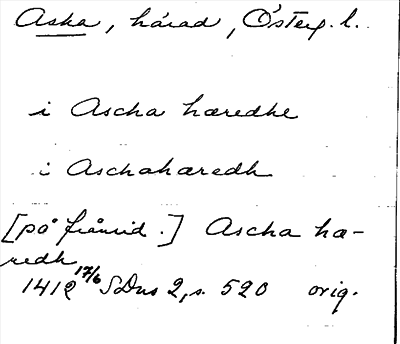 Aska, härad, Österg. l.
i Ascha hæredhe
i Aschahæredh
[på frånsid.] Ascha hæ-
redh
1412 17/6 SDns 2, s. 520 orig.